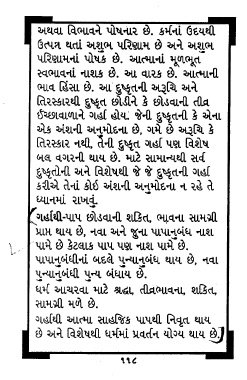 અથવા વિભાવને પોષનાર છે. કર્મનાં ઉદયથી
ઉત્પન્ન થતાં અશુભ પરિણામ છે અને અશુભ
પરિણામનાં પોષક છે. આત્માનાં મૂળભૂત
સ્વભાવનાં નાશક છે. આ વારક છે. આત્માની
ભાવ હિંસા છે. આ દુષ્કૃતની અરૂચિ અને
તિરસ્કારથી દુષ્કૃત છોડીને કે છોડવાની તીવ્ર
ઈચ્છાવાળાને ગર્હા હોય. જેની દુષ્કૃતની કે એના
એક અંશની અનુમોદના છે, ગમે છે અરૂચિ કે
તિરસ્કાર નથી, તેની દુષ્કૃત ગર્હા પણ વિશેષ
બલ વગરની થાય છે. માટે સામાન્યથી સર્વ
દુષ્કૃતોની અને વિશેષથી જે જે દુષ્કૃતની ગર્હા
કરીએ તેનાં કોઈ અંશની અનુમોદના ન રહે તે
ધ્યાનમાં રાખવું.
ગર્હાથી-પાપ છોડવાની શકિત, ભાવના સામગ્રી
પ્રાપ્ત થાય છે, નવા અને જુના પાપાનુબંધ નાશ
પામે છે કેટલાક પાપ પણ નાશ પામે છે.
પાપાનુબંધીનાં બદલે પુન્યાનુબંધ થાય છે, નવા
પુન્યાનુબંધી પુન્ય બંધાય છે.
ધર્મ આચરવા માટે શ્રદ્ધા, તીવ્રભાવના, શકિત,
સામગ્રી મળે છે.
ગર્હાથી આત્મા સાહજિક પાપથી નિવૃત થાય
છે અને વિશેષથી ધર્મમાં પ્રવર્તન યોગ્ય થાય છે.
૧૧૮